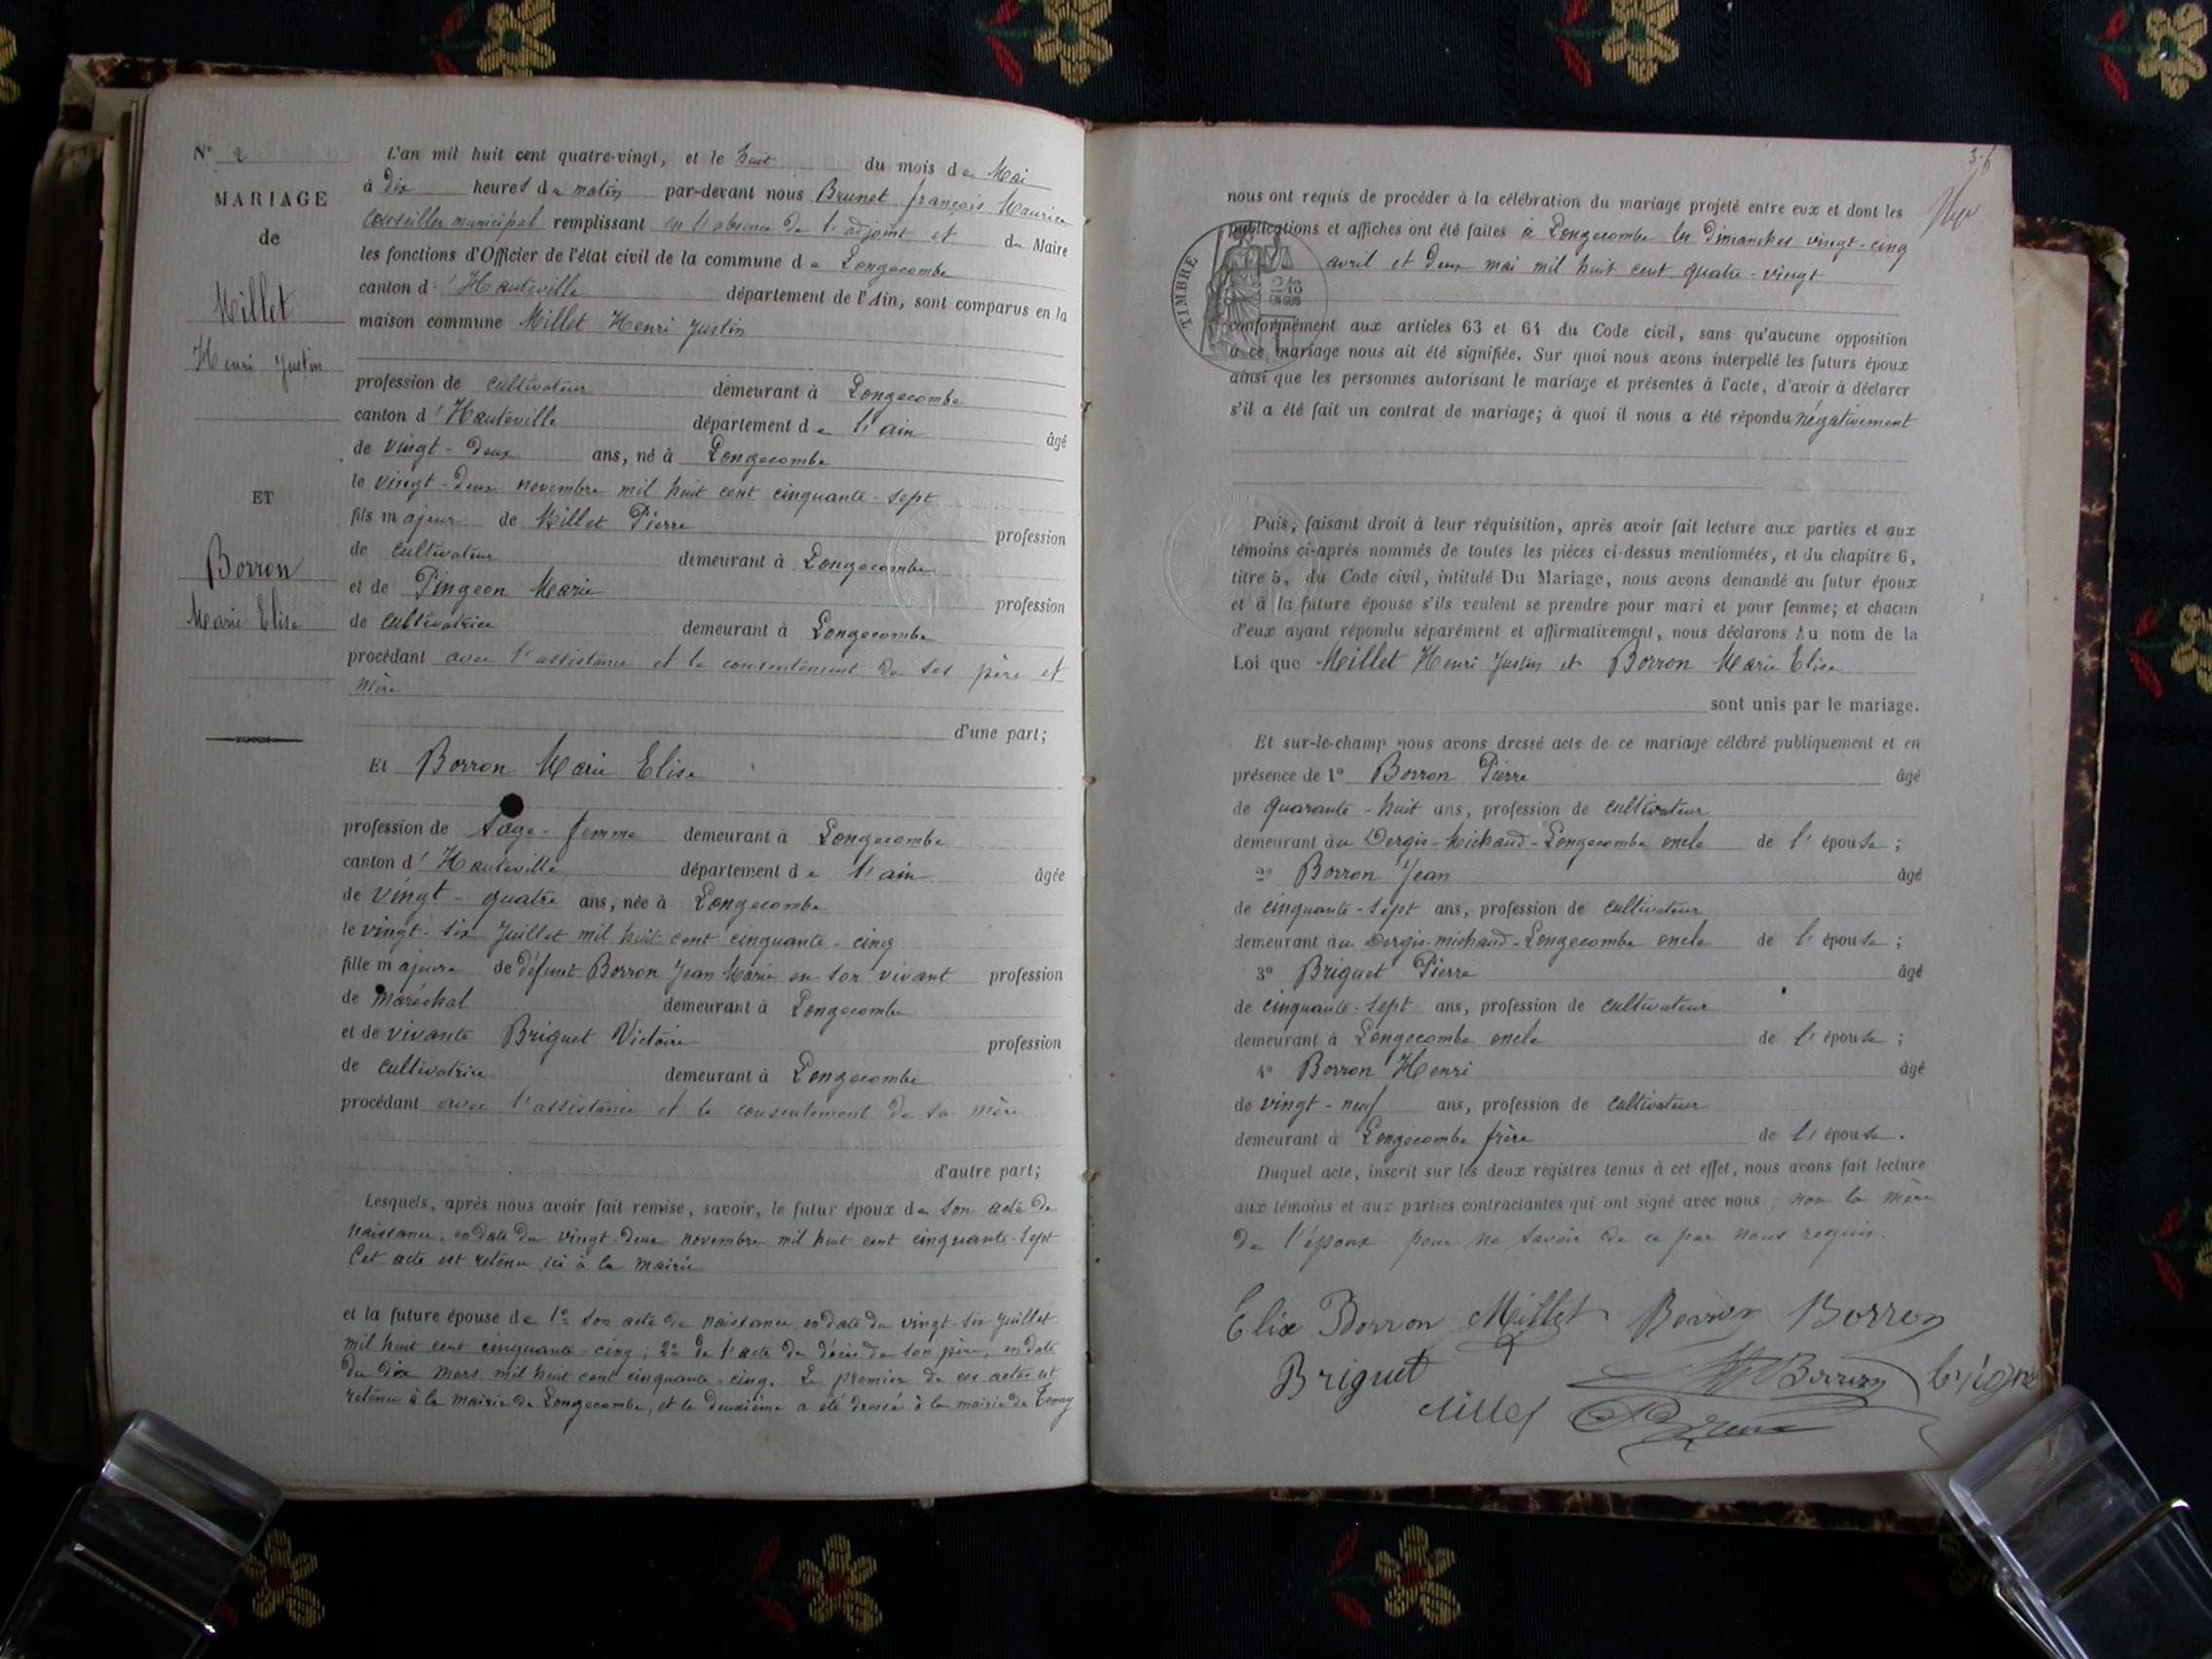 N° 2
MARIAGE
de
Millet
Henri Justin
ET
Borron
Marie Elise
L'an mil huit cent quatre-vingt, et le huit du mois de Mai
à dix heures du matin par-devant nous Brunet françois Maurice
Conseiller municipal remplissant en l'absence de l'adjoint et du Maire
les fonctions d'Officier de l'état civil de la commune de Longecombe
canton d'Hauteville département de l'Ain, sont comparus en la
maison commune Millet Henri Justin
profession de cultivateur demeurant à Longecombe
canton d'Hauteville département de l'ain âgé
de vingt-deux ans, né à Longecombe
le vingt-deux novembre mil huit cent cinquante-sept
fils majeur de Millet Pierre profession
de cultivateur demeurant à Longecombe
et de Pingeon Marie profession
de cultivatrice demeurant à Longecombe
procédant avec l'assistance et le consentement de ses père et
mère
d'une part;
Et Borron Marie Elise
profession de Sage-femme demeurant à Longecombe
canton d'Hauteville département de l'ain âgée
de vingt-quatre ans, née à Longecombe
le vingt-six Juillet mil huit cent cinquante-cinq
fille majeure de défunt Borron Jean Marie en son vivant profession
de maréchal demeurant à Longecombe
et de vivante Briguet Victoire profession
de cultivatrice demeurant à Longecombe
procédant avec l'assistance et le consentement de sa mère
d'autre part;
Lesquels, après nous avoir fait remise, savoir, le futur époux de son acte de
naissance, en date du vingt-deux novembre mil huit cent cinquante-sept
Cet acte est retenu ici à la mairie
et la future épouse de 1° son acte de naissance, en date du vingt-six Juillet
mil huit cent cinquante-cinq; 2° de l'acte de décès de son père, en date
du dix mars mil huit cent cinquante-cinq. Le premier de ces actes est
retenu à la mairie de Longecombe, et le deuxième a été dressé à la mairie de Tenay
nous ont requis de procéder à la célébration du mariage projeté entre eux et dont les
publications et affiches ont été faites à Longecombe les dimanches vingt-cinq
avril et deux mai mil huit cent quatre-vingt
TIMBRE
2/10
EN SUS
conformément aux articles 63 et 64 du Code civil, sans qu'aucune opposition
à ce mariage nous ait été signifiée. Sur quoi nous avons interpellé les futurs époux
ainsi que les personnes autorisant le mariage et présentes à l'acte, d'avoir à déclarer
s'il a été fait un contrat de mariage; à quoi il nous a été répondu négativement
Puis, faisant droit à leur réquisition, après avoir fait lecture aux parties et aux
témoins ci-après nommés de toutes les pièces ci-dessus mentionnées, et du chapitre 6,
titre 5, du Code civil, intitulé Du Mariage, nous avons demandé au futur époux
et à la future épouse s'ils veulent se prendre pour mari et pour femme; et chacun
d'eux ayant répondu séparément et affirmativement, nous déclarons Au nom de la
Loi que Millet Henri Justin et Borron Marie Elise
sont unis par le mariage.
Et sur-le-champ nous avons dressé acte de ce mariage célébré publiquement et en
présence de 1° Borron Pierre âgé
de quarante-huit ans, profession de cultivateur
demeurant au Dergis-Michaud-Longecombe oncle de l'épouse;
2° Borron Jean âgé
de cinquante-sept ans, profession de cultivateur
demeurant au Dergis-michaud-Longecombe oncle de l'épouse;
3° Briguet Pierre âgé
de cinquante-sept ans, profession de cultivateur
demeurant à Longecombe oncle de l'épouse;
4° Borron Henri âgé
de vingt-neuf ans, profession de cultivateur
demeurant à Longecombe frère de l'épouse.
Duquel acte, inscrit sur les deux registres tenus à cet effet, nous avons fait lecture
aux témoins et aux parties contractantes qui ont signé avec nous, non la mère
de l'époux pour ne savoir de ce par nous requis.
Elise Borron Millet Borron Borron
Briguet Borron
Millet Brunet